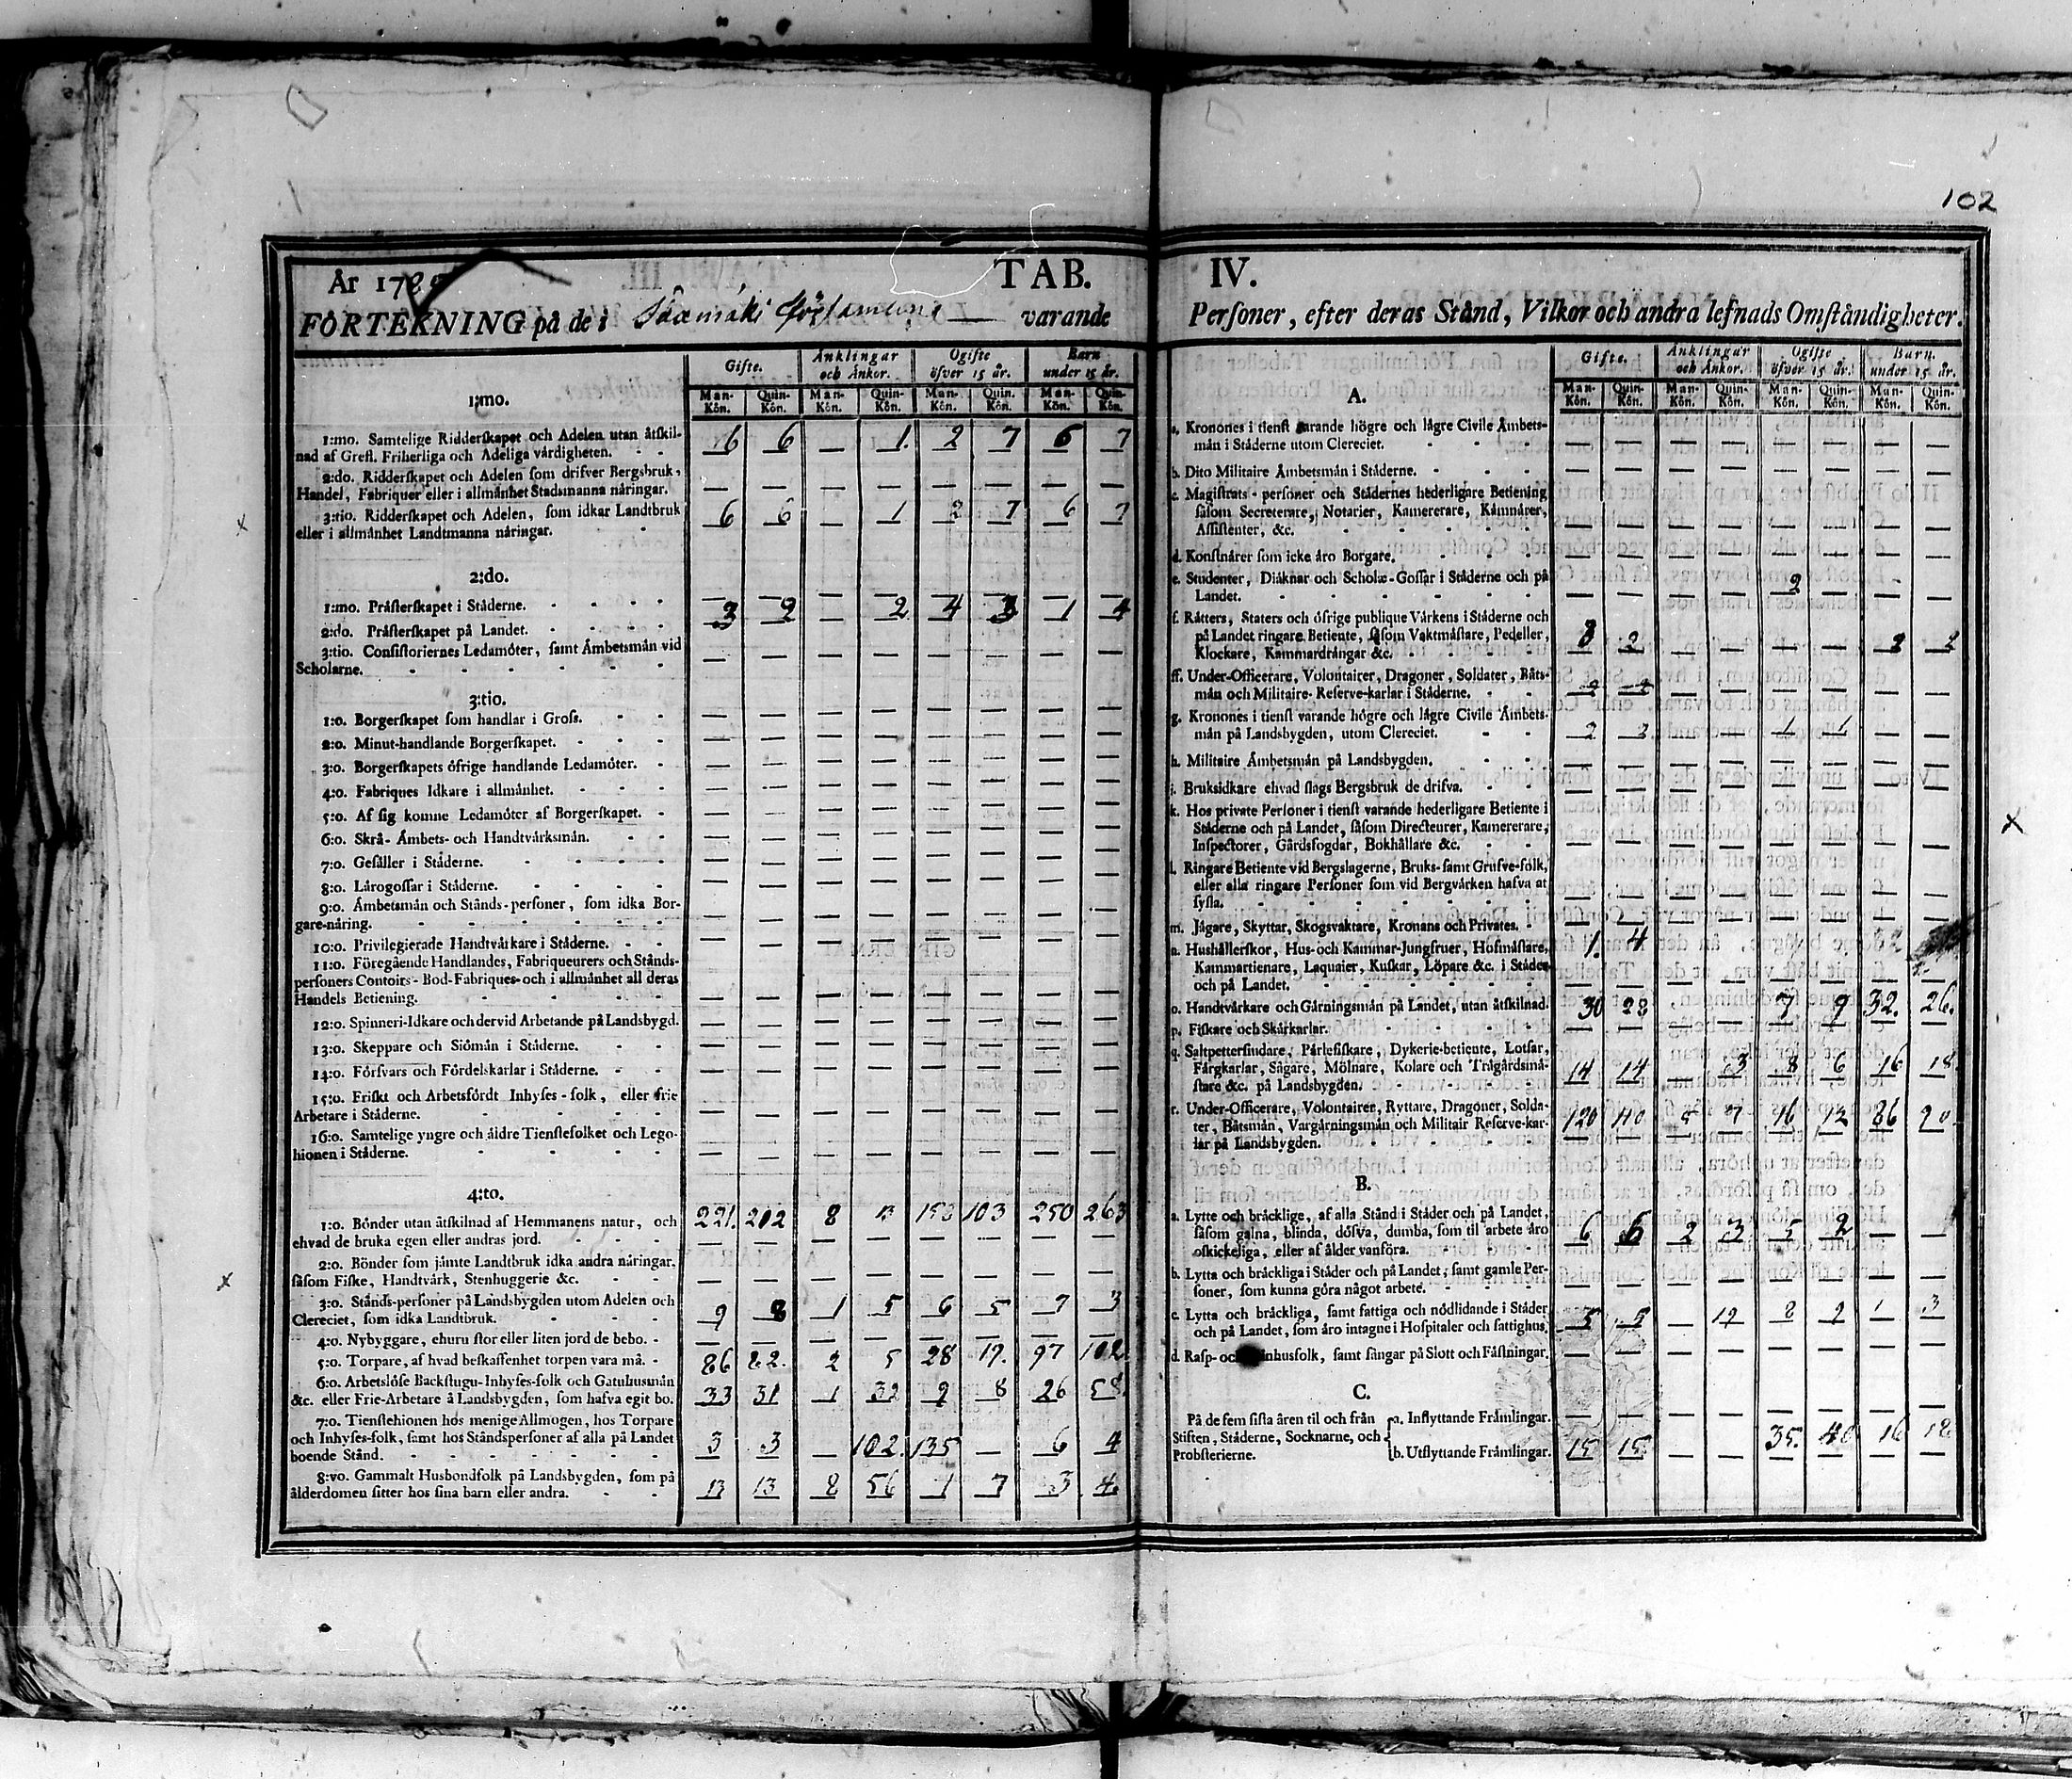 102
År 1780 TAB. IV.
FÖRTEKNING på de i Församling varande Personer, efter deras Stånd, Vilkor och andra lefnads Omständigheter.
Gifte. Änklingar och Änkor. Ogifte öfver 15 år. Barn under 15 år.
Man-Kön. Quin-Kön. Man-Kön. Quin-Kön. Man-Kön. Quin-Kön. Man-Kön. Quin-Kön.
1:mo.
1:mo. Samtelige Ridderskapet och Adelen utan åtskil-
nad af Grefl. Friherliga och Adeliga värdigheten. - - 6 6 — 1. 2 7 6 7
2:do. Ridderskapet och Adelen som drifver Bergsbruk,
Handel, Fabriquer eller i allmänhet Stadsmanna näringar. — — — — — — — —
3:tio. Ridderskapet och Adelen, som idkar Landtbruk 6 6 — 1 2 7 6 7
eller i allmänhet Landtmanna näringar. - -
2:do.
1:mo. Prästerskapet i Städerne. - - - - — — — — — — — —
2:do. Prästerskapet på Landet. - - - - 3 2 — 2 4 3 1 4
3:tio. Consistoriernes Ledamöter, samt Ämbetsmän vid
Scholarne. - - - - - — — — — — — — —
3:tio.
1:o. Borgerskapet som handlar i Gross. - - — — — — — — — —
2:o. Minut-handlande Borgerskapet. - - - — — — — — — — —
3:o. Borgerskapets öfrige handlande Ledamöter. - — — — — — — — —
4:o. Fabriques Idkare i allmänhet. - - - - — — — — — — — —
5:o. Af sig komne Ledamöter af Borgerskapet. - — — — — — — — —
6:o. Skrå- Ämbets- och Handtvärksmän. - - - — — — — — — — —
7:o. Gesäller i Städerne. - - - - — — — — — — — —
8:o. Lärogossar i Städerne. - - - - — — — — — — — —
9:o. Ämbetsmän och Stånds-personer, som idka Bor-
gare-näring. - - - - - — — — — — — — —
10:o. Privilegierade Handtvärkare i Städerne. - - — — — — — — — —
11:o. Föregående Handlandes, Fabriqueurers och Stånds-
personers Contoirs- Bod-Fabriques-och i allmänhet all deras
Handels Betiening. - - - - — — — — — — — —
12:o. Spinneri-Idkare och dervid Arbetande på Landsbygd. — — — — — — — —
13:o. Skeppare och Siömän i Städerne. - - — — — — — — — —
14:o. Försvars och Fördelskarlar i Städerne. - - — — — — — — — —
15:o. Friskt och Arbetsfördt Inhyses-folk, eller frie
Arbetare i Städerne. - - - - — — — — — — — —
16:o. Samtelige yngre och äldre Tienstefolket och Lego-
hionen i Städerne. - - - - — — — — — — — —
4:to.
1:o. Bönder utan åtskilnad af Hemmanens natur, och 221. 202 8 13 103 250 263
ehvad de bruka egen eller andras jord. - - - — — — — — — — —
2:o. Bönder som jämte Landtbruk idka andra näringar,
såsom Fiske, Handtvärk, Stenhuggerie &c. - - — — — — — — — —
3:o. Stånds-personer på Landsbygden utom Adelen och
Clereciet, som idka Landtbruk. - - - 9 8 1 5 6 5 7 3
4:o. Nybyggare, ehuru stor eller liten jord de bebo. - — — — — — — — —
5:o. Torpare, af hvad beskaffenhet torpen vara må. - 86 82. 2 5 28 97 102.
6:o. Arbetslöse Backstugu-Inhyses-folk och Gatuhusmän
&c. eller Frie-Arbetare å Landsbygden, som hafva egit bo. 33 31 1 32 8 26 58.
7:o. Tienstehionen hos menige Allmogen, hos Torpare
och Inhyses-folk, samt hos Ståndspersoner af alla på Landet 3 3 — 102. 135 — 6 4
boende Stånd. - - - - -
8:vo. Gammalt Husbondfolk på Landsbygden, som på
ålderdomen sitter hos sina barn eller andra. - - 13 13 8 56 1 7 3 4.
Gifte. Änklingar och Änkor. Ogifte öfver 15 år. Barn. under 15 år.
Man-Kön. Quin-Kön. Man-Kön. Quin-Kön. Man-Kön. Quin-Kön. Man-Kön. Quin-Kön.
A.
a. Kronones i tienst varande högre och lägre Civile Ämbets-
män i Städerne utom Clereciet. - - - — — — — — — — —
b. Dito Militaire Ämbetsmän i Städerne. - - - — — — — — — — —
c. Magistrats-personer och Städernes hederligare Betiening
såsom Secreterare, Notarier, Kamererare, Kämnärer,
Assistenter, &c. - - - - - — — — — — — — —
d. Konstnärer som icke äro Borgare. - - - — — — — — — — —
e. Studenter, Diäknar och Scholæ-Gossar i Städerne och på
Landet. - - - - - — — — — 2 — — —
f. Rätters, Staters och öfrige publique Värkens i Städerne och
på Landet ringare Betiente, såsom Vaktmästare, Pedeller,
Klockare, Kammardrängar &c. - - - 3 2 — — — — 2
ff. Under-Officerare, Volontairer, Dragoner, Soldater, Båts-
män och Militaire-Reserve-karlar i Städerne. - - — — — — — —
g. Kronones i tienst varande högre och lägre Civile Ämbets-
män på Landsbygden, utom Clereciet. - - 2 2 — — 1 1 — —
h. Militaire Ämbetsmän på Landsbygden. - - - — — — — — — — —
i. Bruksidkare ehvad slags Bergsbruk de drifva. - - — — — — — — — —
k. Hos private Personer i tienst varande hederligare Betiente i
Städerne och på Landet, såsom Directeurer, Kamererare,
Inspectorer, Gårdsfogdar, Bokhållare &c. - - — — — — — — — —
l. Ringare Betiente vid Bergslagerne, Bruks-samt Grufve-folk,
eller alla ringare Personer som vid Bergvärken hafva at
sysla. - - - - - — — — — — — — —
m. Jägare, Skyttar, Skogsvaktare, Kronans och Privates. - — — — — — — — —
n. Hushållerskor, Hus-och Kammar-Jungfruer, Hofmästare, 1. 4. 2
Kammartienare, Laquaier, Kuskar, Löpare &c. i Städer
och på Landet. - - - - - — — — — — — — —
o. Handtvärkare och Gärningsmän på Landet, utan åtskilnad. 30 28 — — 7 9 32. 26.
p. Fiskare och Skärkarlar. - - - - — — — — — — — —
q. Saltpettersiudare, Pärlefiskare, Dykerie-betiente, Lotsar,
Färgkarlar, Sågare, Mölnare, Kolare och Trägårdsmä- 14 14 — 3 8 6 16 18.
stare &c. på Landsbygden. - - -
r. Under-Officerare, Volontairer, Ryttare, Dragoner, Solda-
ter, Båtsmän, Vargärningsmän och Militair Reserve-kar- 120 110 5 7 16 12 86 90
lar på Landsbygden. - - -
B.
a. Lytte och bräcklige, af alla Stånd i Städer och på Landet,
såsom galna, blinda, döfva, dumba, som til arbete äro 6 6 2 3 5 2 — —
oskickeliga, eller af ålder vanföra. - - -
b. Lytta och bräckliga i Städer och på Landet, samt gamle Per-
soner, som kunna göra något arbete. - - - — — — — — — — —
c. Lytta och bräckliga, samt fattiga och nödlidande i Städer
och på Landet, som äro intagne i Hospitaler och fattighus. 5 5 — 8 1 3
d. Rasp- och Spinhusfolk, samt fångar på Slott och Fästningar. — — — — — — — —
C.
På de fem sista åren til och från a. Inflyttande Främlingar. — — — — — — — —
Stiften, Städerne, Socknarne, och
Probsterierne. b. Utflyttande Främlingar. 15 15 — — 35. 40 16 18